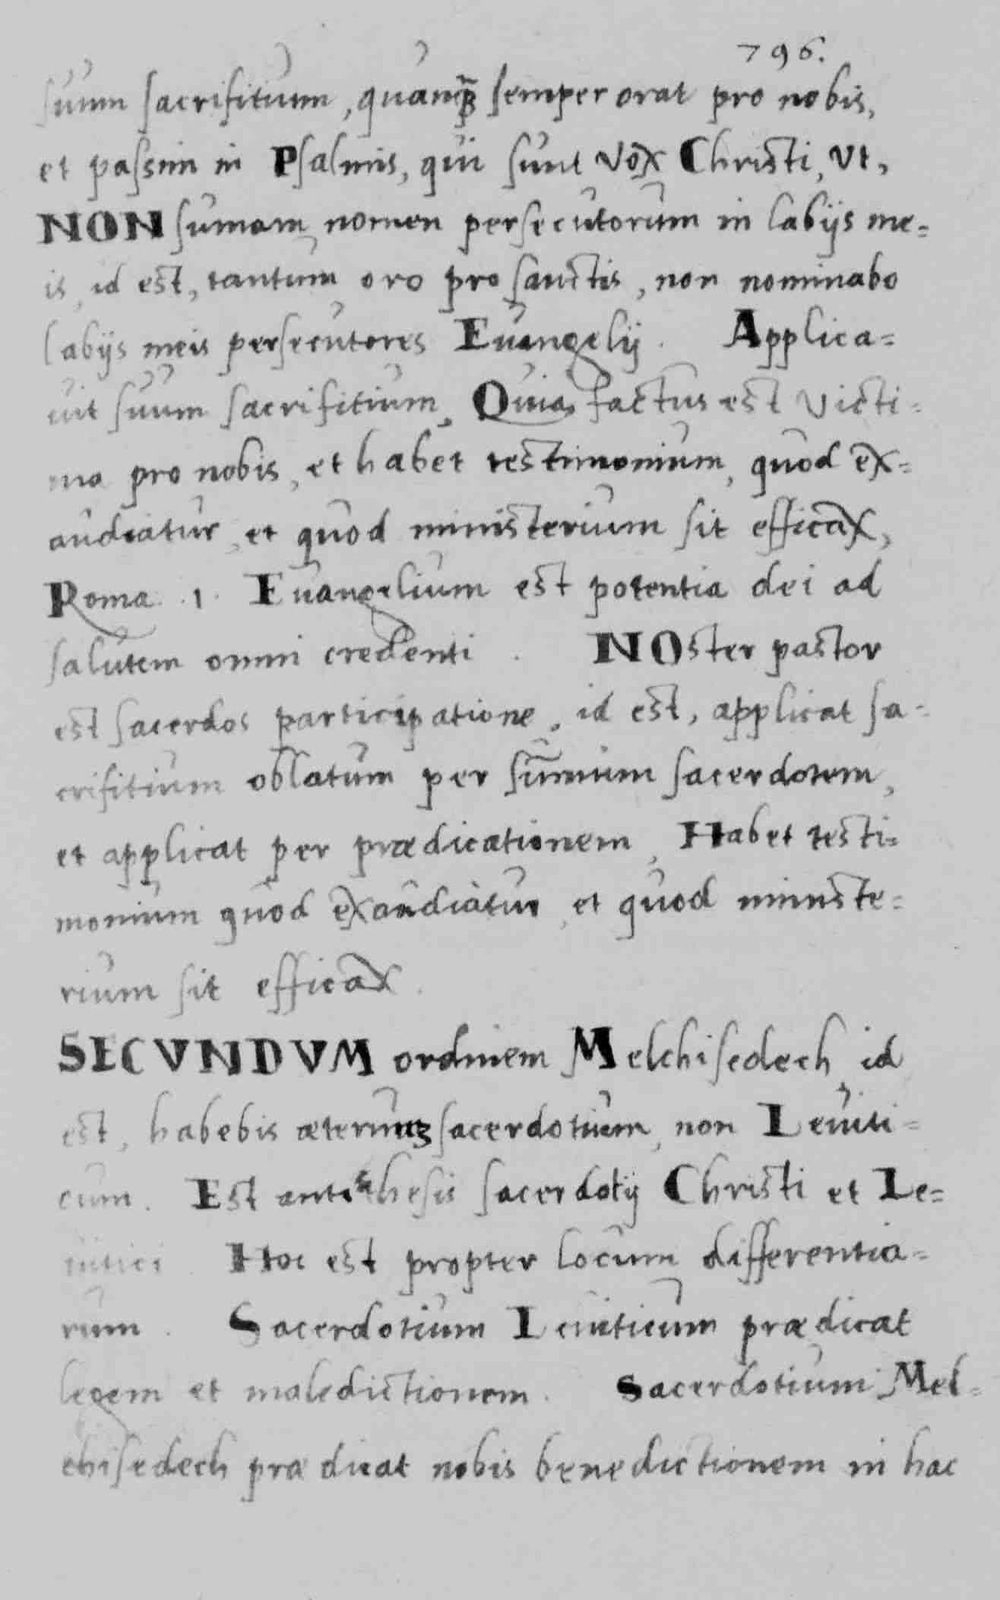 796.
suum sacrifitium, quamq̃ semper orat pro nobis,
et passim in Psalmis, qui sunt vox Christi, Vt,
NON sumam nomen persecutorum in labijs me=
is, id est, tantum oro pro sanctis, non nominabo
labijs meis persecutores Euangelij. Applica=
uit suum sacrifitium, Quia factus est victi=
ma pro nobis, et habet testimonium, quod ex=
audiatur, et quod ministerium sit efficax,
Roma. 1. Euangelium est potentia dei ad
salutem omni credenti. NOster pastor
est sacerdos participatione, id est, applicat sa=
crifitium oblatum per sum̃um sacerdotem,
et applicat per prædicationem, Habet testi=
monium quod exaudiatur, et quod ministe=
rium sit efficax.
SECVNDVM ordinem Melchisedech, id
est, habebis æternuꝫ sacerdotium, non Leuiti=
cum. Est antithesis sacerdotij Christi et Le=
uitici. Hoc est propter locum differentia=
rum. Sacerdotium Leuiticum prædicat
legem et maledictionem. Sacerdotium Mel=
chisedech prædicat nobis benedictionem in hac